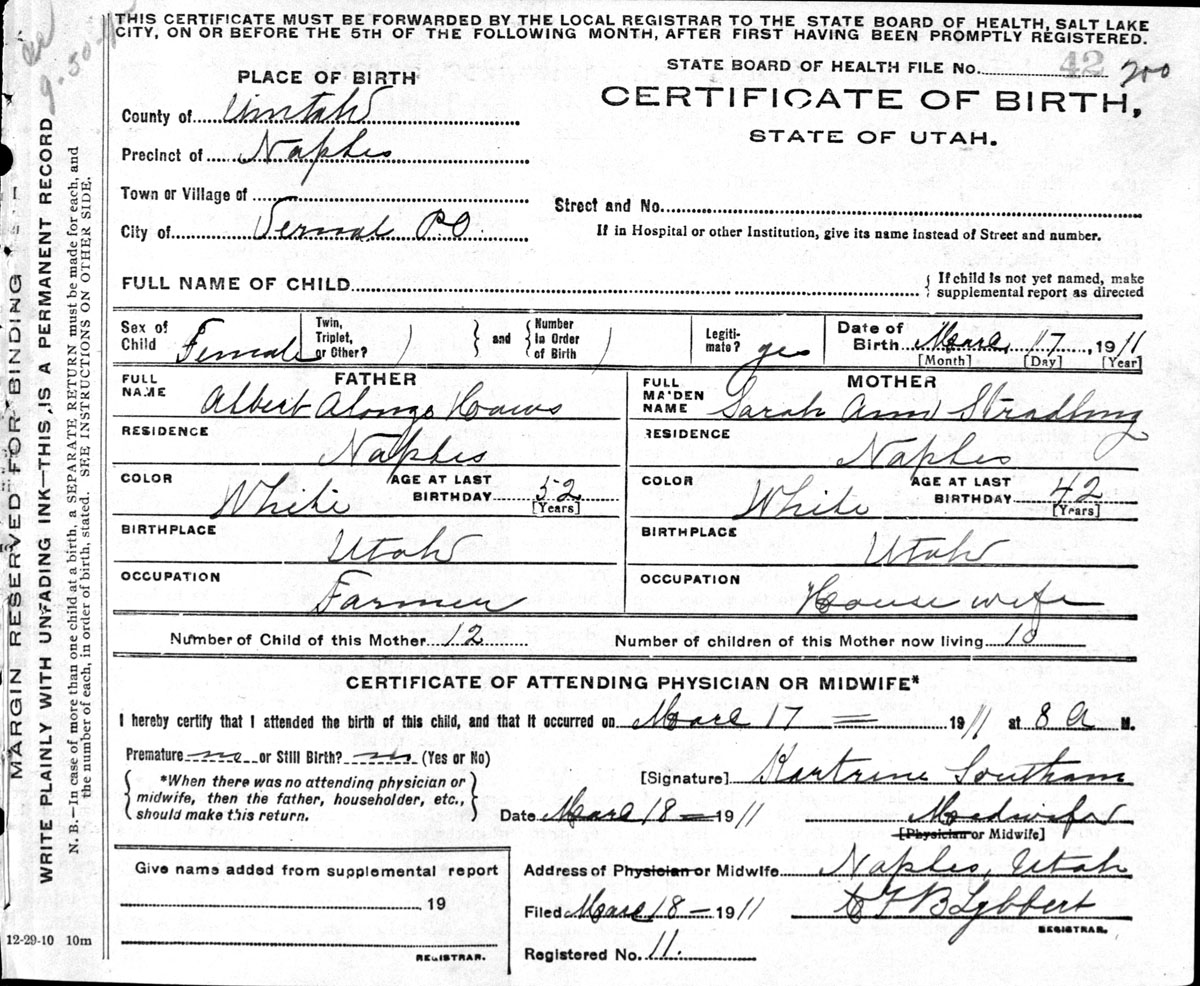 THIS CERTIFICATE MUST BE FORWARDED BY THE LOCAL REGISTRAR TO THE STATE BOARD OF HEALTH, SALT LAKE
CITY, ON OR BEFORE THE 5TH OF THE FOLLOWING MONTH, AFTER FIRST HAVING BEEN PROMPTLY REGISTERED.
STATE BOARD OF HEALTH FILE No. 42 200
CERTIFICATE OF BIRTH,
STATE OF UTAH.
PLACE OF BIRTH
County of Uintah
Precinct of Naples
Town or Village of
City of Vernal PO.
Street and No.
If in Hospital or other Institution, give its name instead of Street and number.
FULL NAME OF CHILD
{ If child is not yet named, make
supplemental report as directed
Sex of Child Female
Twin, Triplet, or Other? } and { Number In Order of Birth
Legitimate? yes
Date of Birth Mar 17, 1911
[Month] [Day] [Year]
FATHER
FULL NAME Albert Alonzo Haws
RESIDENCE Naples
COLOR White AGE AT LAST BIRTHDAY 52 [Years]
BIRTHPLACE Utah
OCCUPATION Farmer
MOTHER
FULL MAIDEN NAME Sarah Ann Stradling
RESIDENCE Naples
COLOR White AGE AT LAST BIRTHDAY 42 [Years]
BIRTHPLACE Utah
OCCUPATION House wife
Number of Child of this Mother 12 Number of children of this Mother now living 10
CERTIFICATE OF ATTENDING PHYSICIAN OR MIDWIFE*
I hereby certify that I attended the birth of this child, and that it occurred on Mar 17 = 1911 at 8 A M.
Premature no or Still Birth? no (Yes or No)
{ *When there was no attending physician or
midwife, then the father, householder, etc.,
should make this return. }
[Signature] Kartrine Southam
Date Mar 18 = 1911 Midwife
[Physician or Midwife]
Address of Physician or Midwife Naples, Utah
Filed Mar 18 - 1911 C F B Lybbert
REGISTRAR.
Registered No. 11.
Give name added from supplemental report
19
REGISTRAR.
12-29-10 10m
MARGIN RESERVED FOR BINDING
WRITE PLAINLY WITH UNFADING INK—THIS IS A PERMANENT RECORD
N. B.—In case of more than one child at a birth, a SEPARATE RETURN must be made for each, and
the number of each, in order of birth, stated. SEE INSTRUCTIONS ON OTHER SIDE.